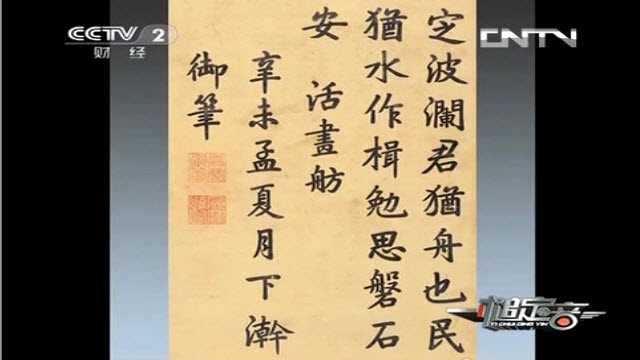 CCTV 2
财经
CNTV
定波瀾君猶舟也民
猶水作楫勉思磐石
安 活畫舫
辛未孟夏月下澣
御筆
一槌定音
YI CHUI DING YIN